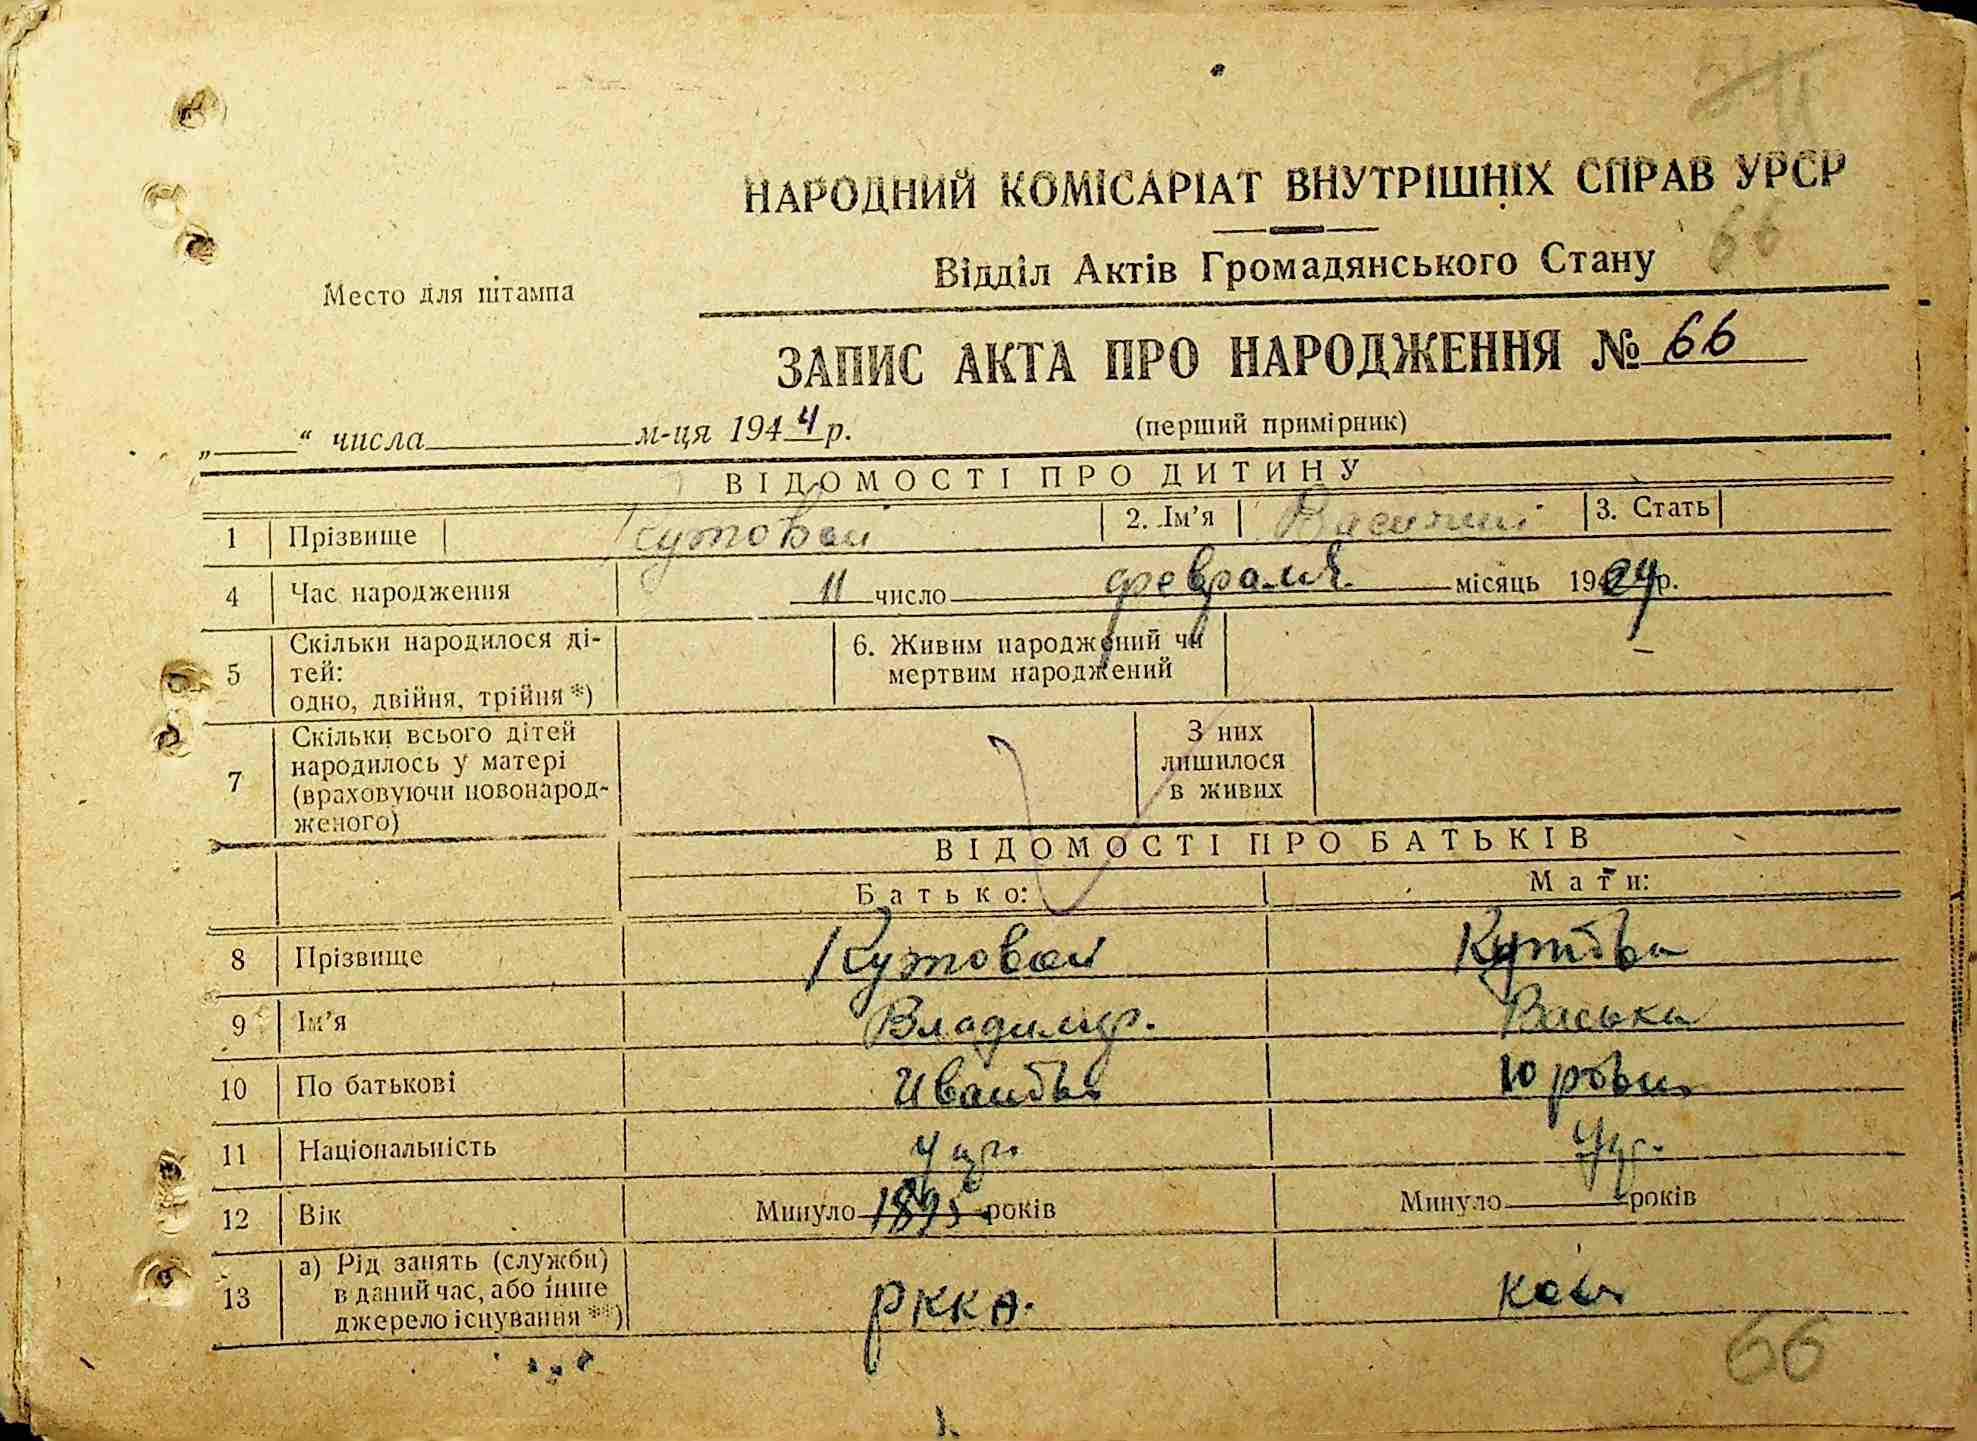 НАРОДНИЙ КОМІСАРІАТ ВНУТРІШНІХ СПРАВ УРСР
66
Відділ Актів Громадянського Стану
Место для штампа
ЗАПИС АКТА ПРО НАРОДЖЕННЯ № 66
„ “ числа м-ця 1944 р. (перший примірник)
ВІДОМОСТІ ПРО ДИТИНУ
1 Прізвище Кутовой 2. Ім’я Василий 3. Стать
4 Час народження 11 число февраля місяць 1924 р.
5 Скільки народилося ді-
тей:
одно, двійня, трійня *)
6. Живим народжений чи
мертвим народжений
7 Скільки всього дітей
народилось у матері
(враховуючи новонарод-
женого)
З них
лишилося
в живих
ВІДОМОСТІ ПРО БАТЬКІВ
Батько: Мати:
8 Прізвище Кутовой Кутова
9 Ім’я Владимир. Васька
10 По батькові
11 Національність Укр. Укр.
12 Вік Минуло 1895 років Минуло років
13 а) Рід занять (служби)
в даний час, або інше
джерело існування **)
РККА.
66